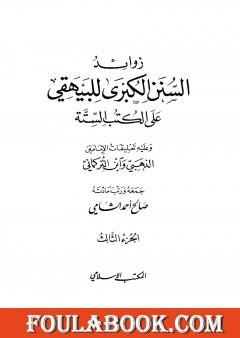 زوائد
السنن الكبرى للبيهقي
على الكتب الستة
وعليه تعليقات الإمامين
الذهبي وابن التركماني
جمعه ورتب مادته
صالح أحمد الشامي
الجزء الثالث
المكتب الإسلامي
FOULABOOK.COM